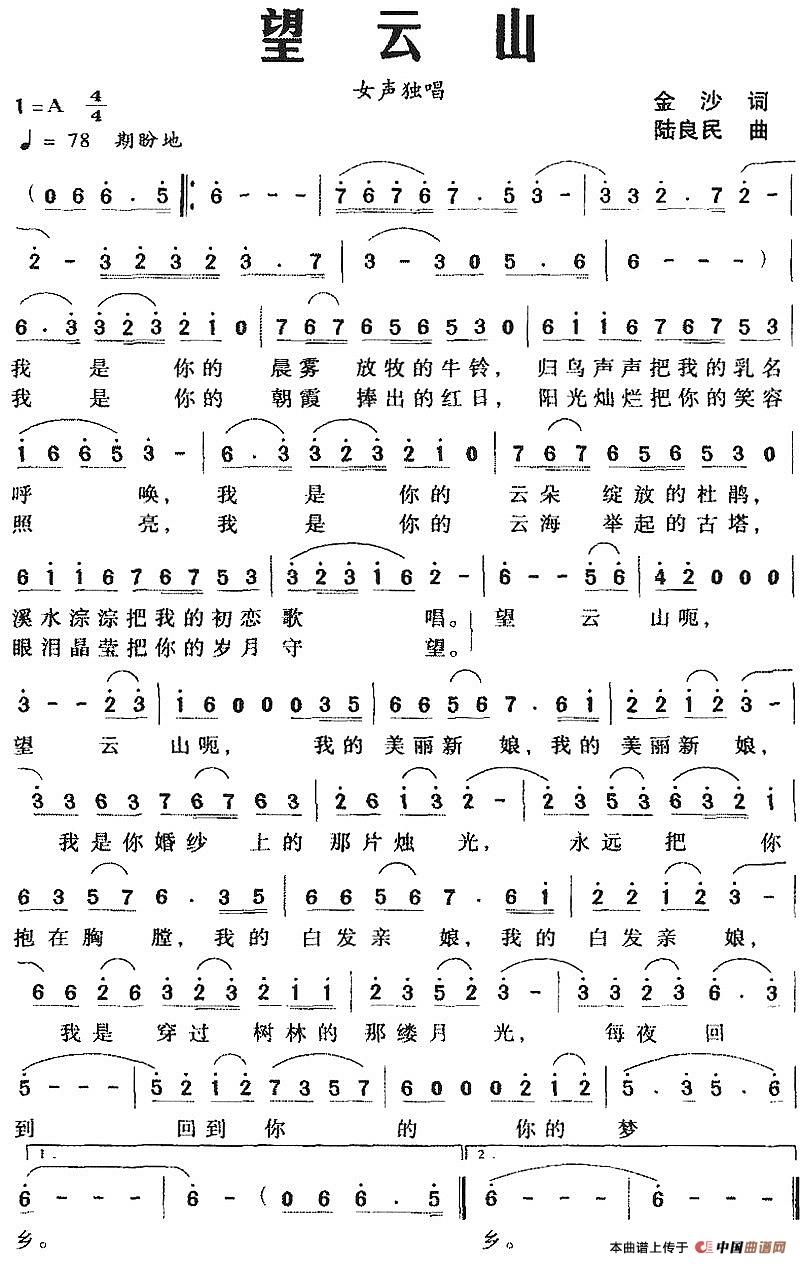 望云山
女声独唱
1=A 4/4
金沙 词
♩= 78 期盼地
陆良民 曲
(066.5 6--- 76767.53- 332.7 2-
2-323233.7 3-305.6 6---)
6.3323210 767656530 611676753
我是你的晨雾放牧的牛铃,归鸟声声把我的乳名
我是你的朝霞捧出的红日,阳光灿烂把你的笑容
16653- 6.3323210 767656530
呼唤,我是你的云朵绽放的杜鹃,
照亮,我是你的云海举起的古塔,
611676753 323162- 6--56 42000
溪水淙淙把我的初恋歌唱。望云山呃,
眼泪晶莹把你的岁月守望。
3--23 1600035 66567.61 22123-
望云山呃,我的美丽新娘,我的美丽新娘,
336376763 26132- 23536321
我是你婚纱上的那片烛光,永远把你
63576.35 66567.61 22123-
抱在胸膛,我的白发亲娘,我的白发亲娘,
6626323211 23523- 33236.3
我是穿过树林的那缕月光,每夜回
5--- 52127357 6000212 5.35.6
到回到你的你的梦
1. 2.
6--- 6-(066.5 6--- 6---
乡。乡。
本曲谱上传于 中国曲谱网